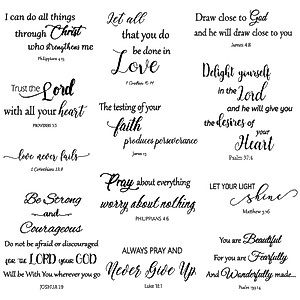 I can do all things
through Christ
who strengthens me
Philippians 4:13
Let all
that you do
be done in
Love
1 Corinthians 16:14
Draw close to God
and he will draw close to you
James 4:8
Trust the Lord
with all your heart
PROVERBS 3:5
The testing of your
faith
produces perseverance
James 1:3
Delight yourself
in the Lord
and he will give you
the desires of
your Heart
Psalm 37:4
love never fails
1 Corinthians 13:8
Pray about everything
worry about nothing
PHILIPPIANS 4:6
LET YOUR LIGHT
shine
Matthew 5:16
Be Strong
and
Courageous
Do not be afraid or discouraged
for the LORD your GOD
Will be With You wherever you go
JOSHUA 1:9
ALWAYS PRAY AND
Never Give Up
Luke 18:1
You are Beautiful
For you are Fearfully
And Wonderfully made...
Psalm 139:14